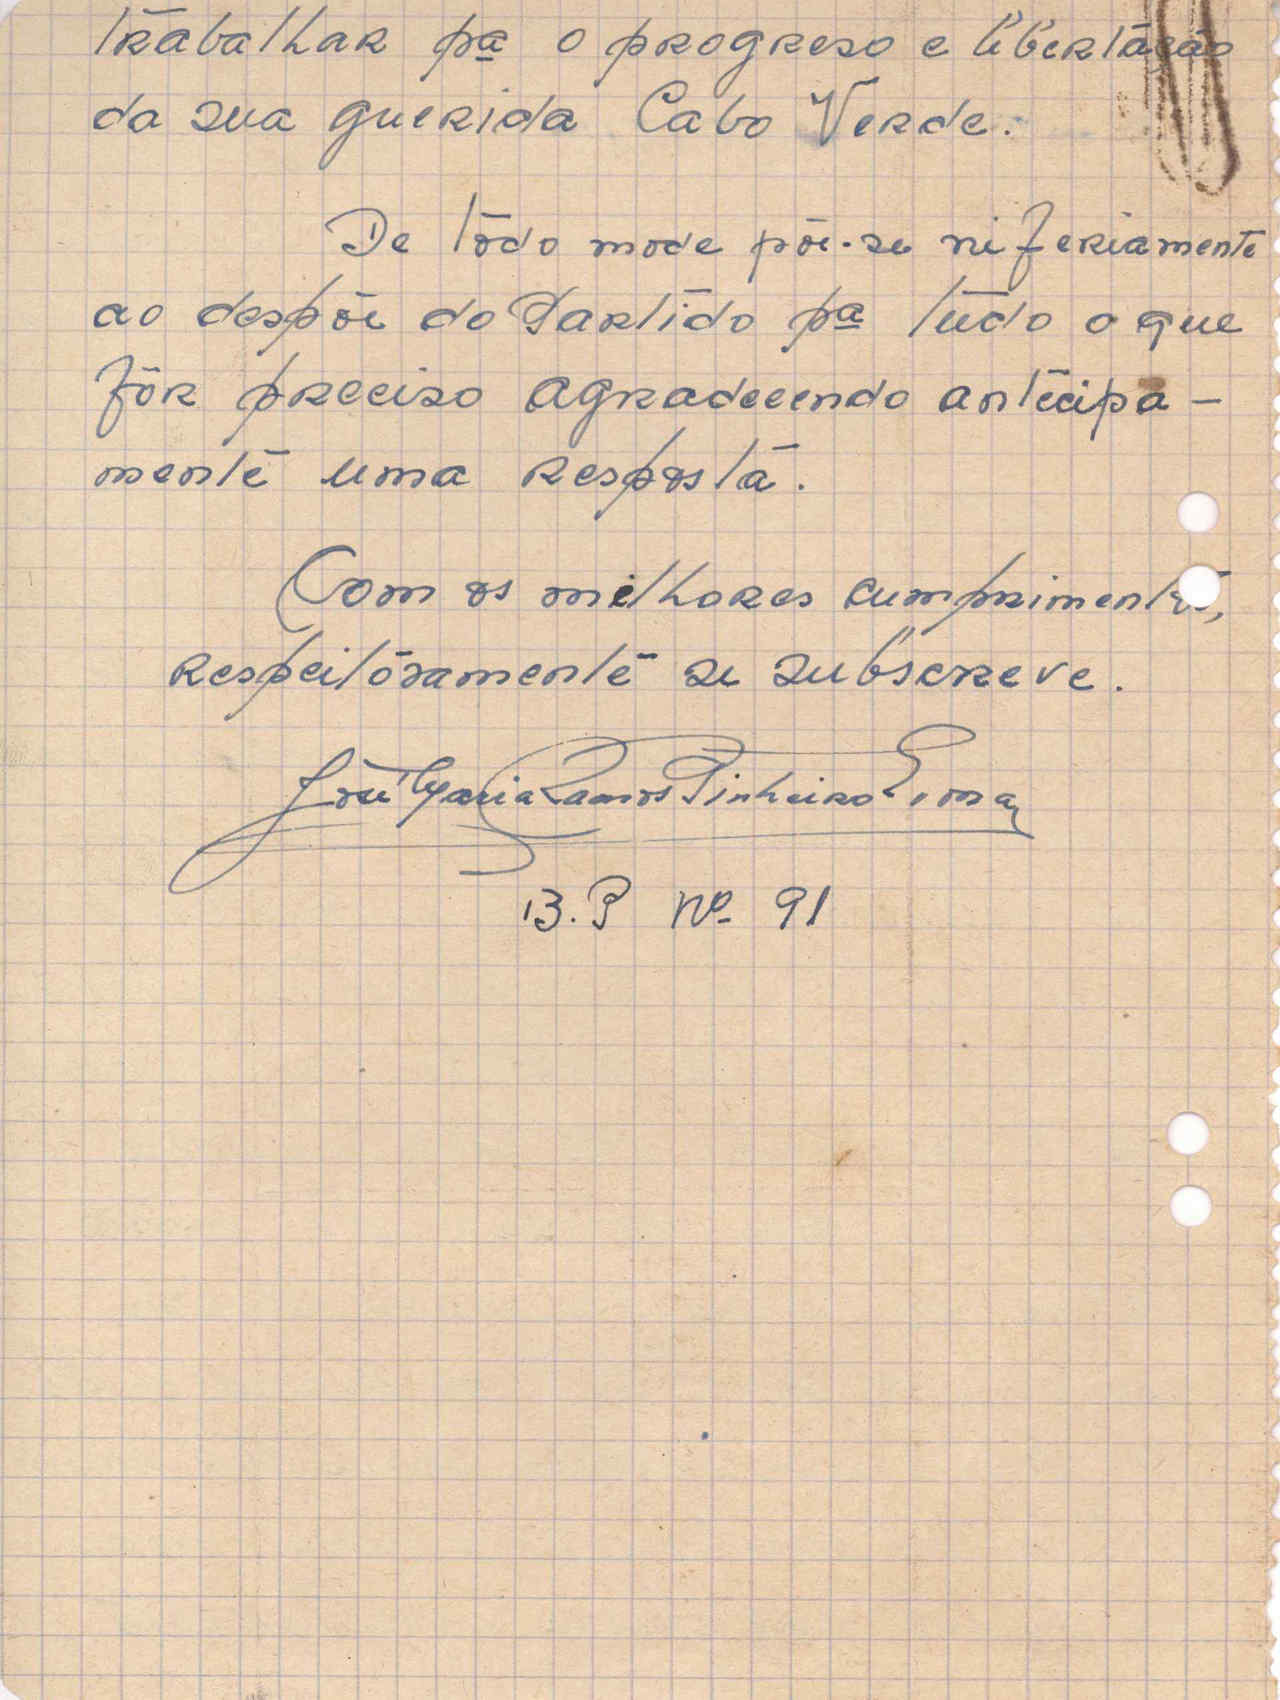 trabalhar pª o progreso e libertação
da sua querida Cabo Verde.
De tôdo mode põe-se niferiamente
ao despôi do Partido pª tudo o que
fôr preciso agradecendo antecipa-
mente uma resposta.
Com os melhores cumprimentos,
respeitósamente se subscreve.
José Maria Ramos Pinheiro
B.P Nº 91